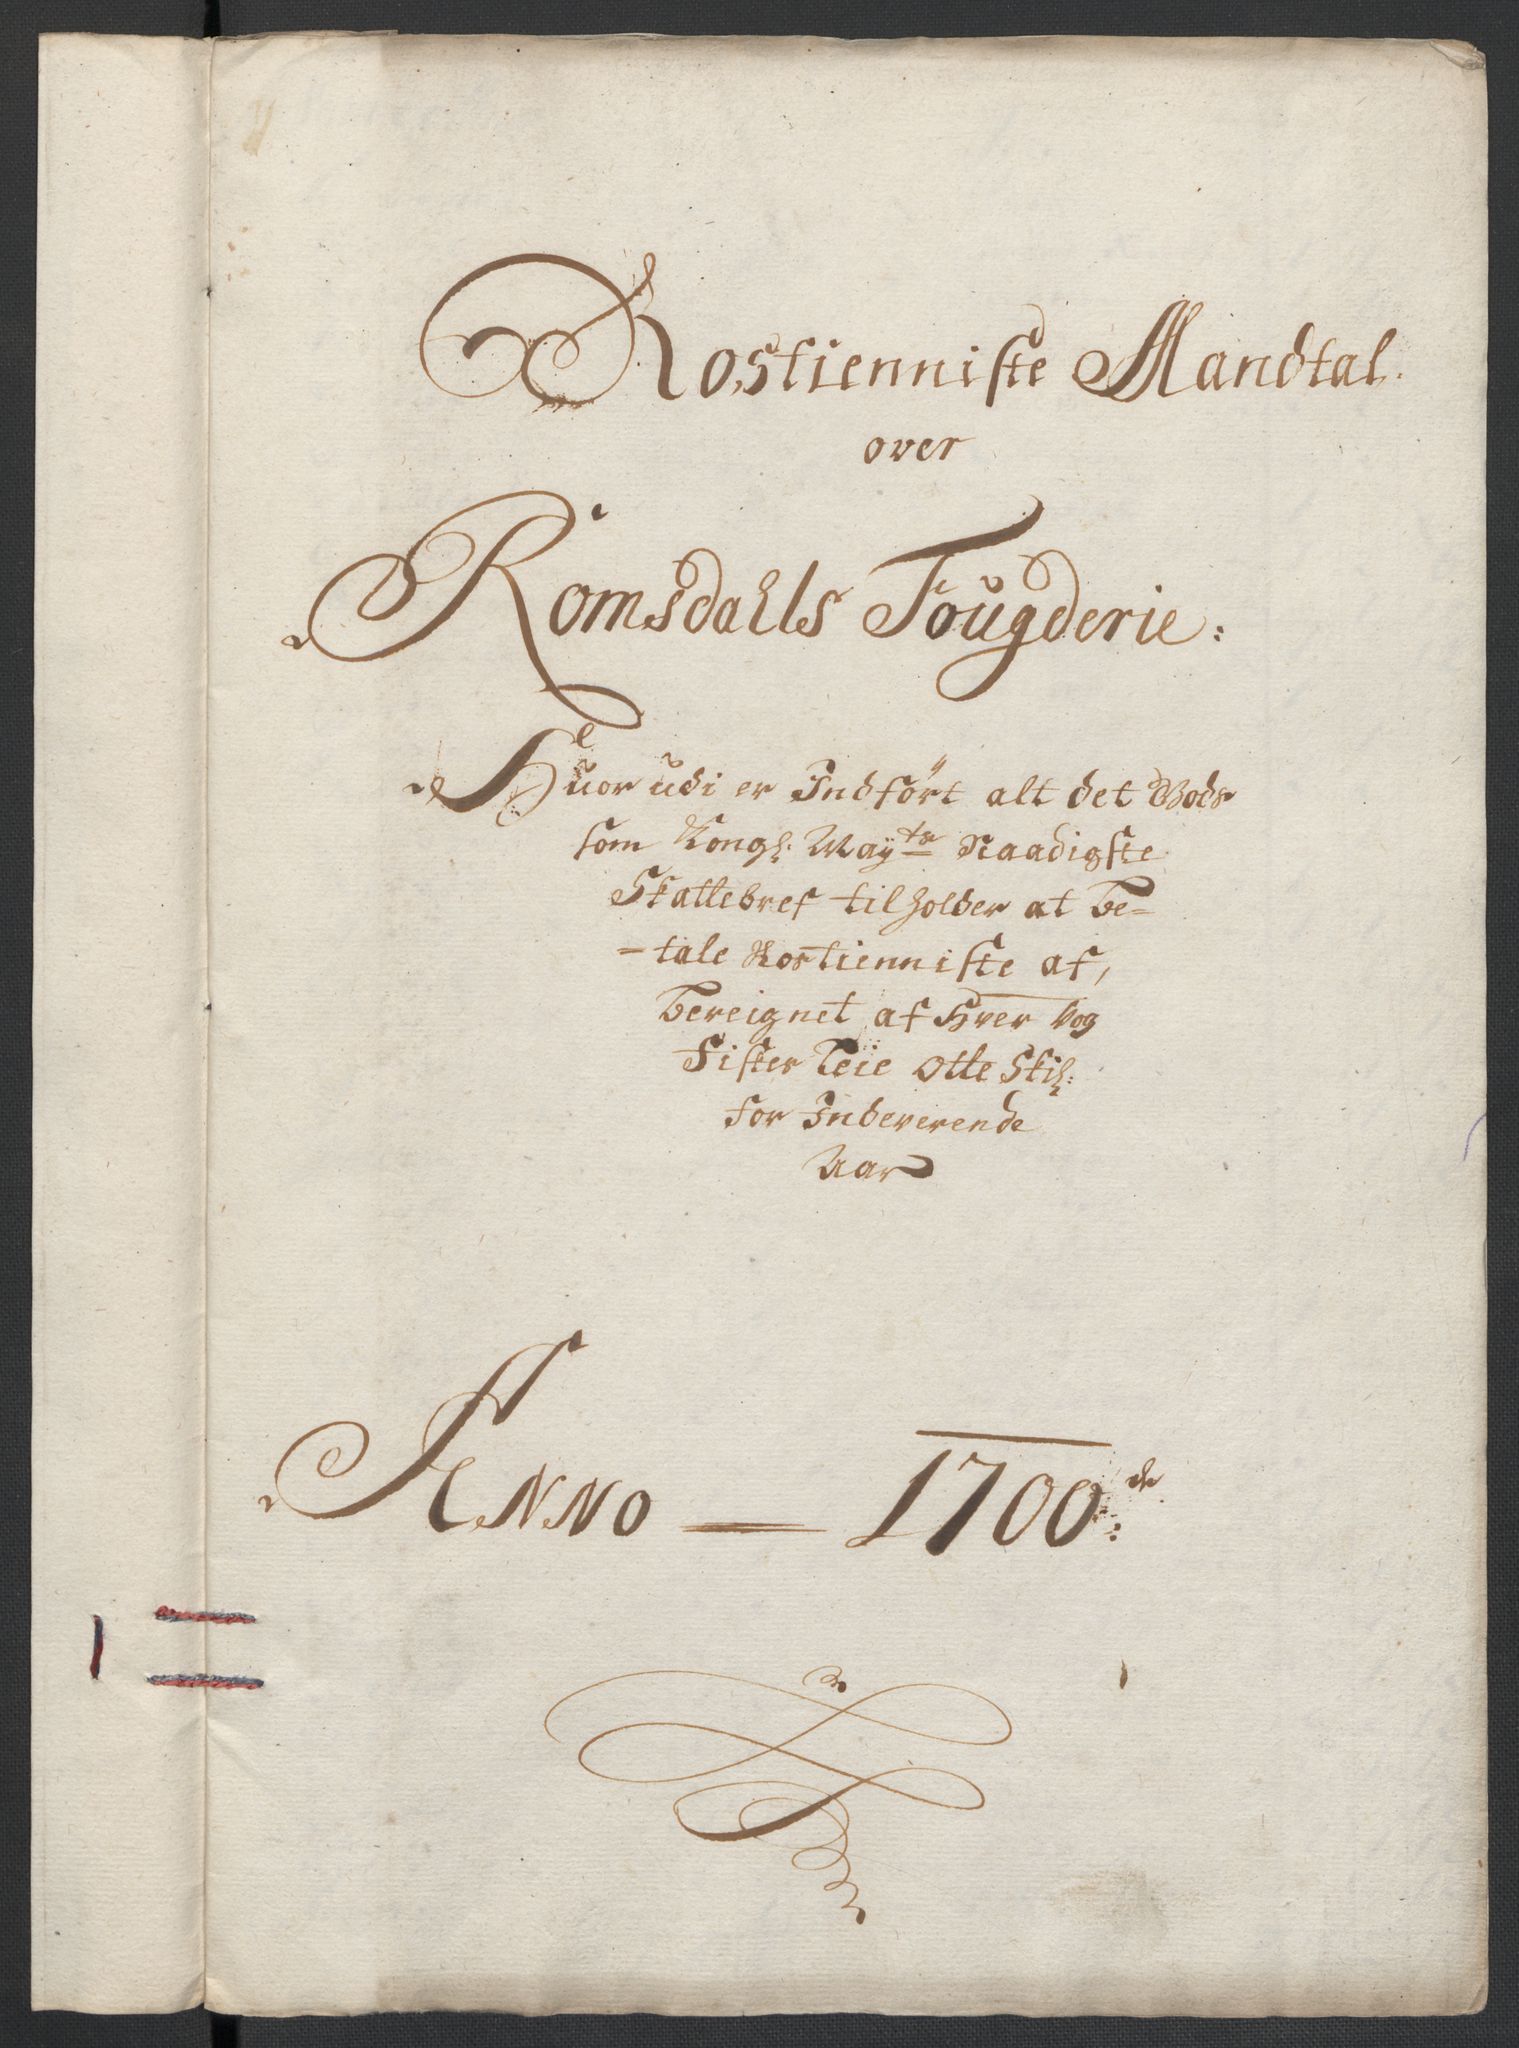 Rostienniste Mandtal.
over
Romsdahls Fougderie:
Huor udi er Indført alt det Gods
som Kongl: Mayts Naadigste
Skattebref tilholder at be-
-tale Rostienniste af,
bereignet af Hver Vog
Fisker leie Otte Skil:
for Indeverende
Aar
Anno — 1700de